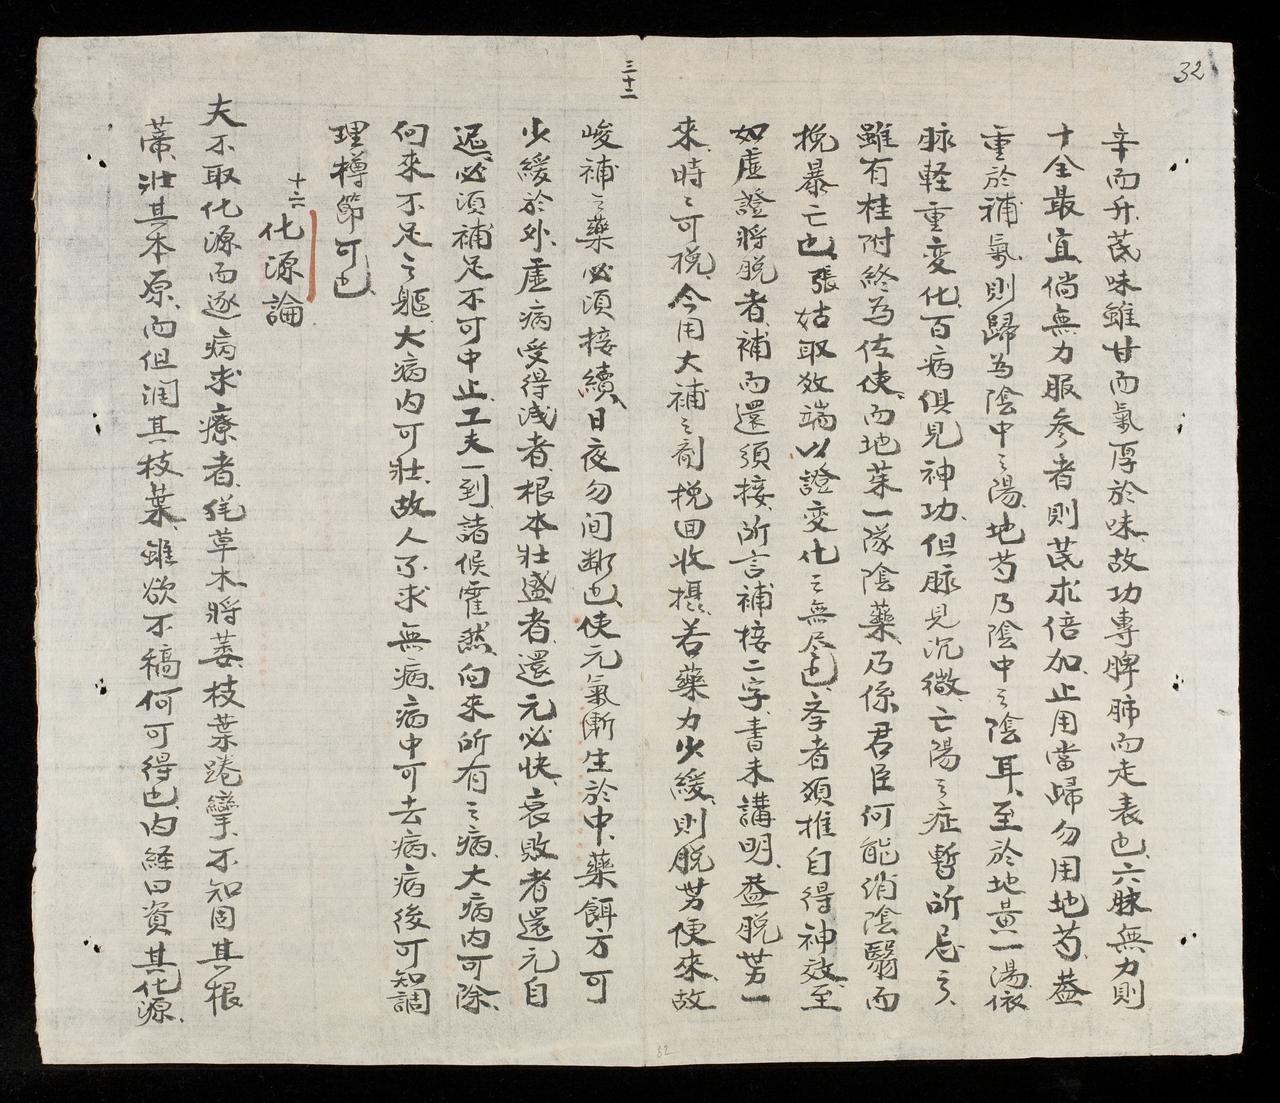 32
辛而升、芪味雖甘而氣厚於味、故功專脾肺而走表也、六脉無力則
十全最宜、倘無力服参者則芪术倍加、止用當歸勿用地芍、蓋
重於補氣則歸為陰中之陽、地芍乃陰中之陰耳、至於地黃一湯依
脉軽重変化、百病俱見神功、但脉見沉微、亡陽之症暫所忌之、
雖有桂附終為佐使、而地茱一隊陰藥、乃係君臣何能消陰翳而
挽暴亡也、張姑取效端以證変化之無尽也、孝者須推自得神效至
如虚證將脱者、補而還須接、所言補接二字、書未講明、蓋脱势一
來、時之可挽、今用大補之剤挽回收摂、若藥力少緩、則脱势便來、故
三十二
峻補之藥必須接續、日夜勿间断也、使元氣漸生於中、藥餌方可
少緩於外、虚病受得减者、根本壮盛者、還元必快、衰敗者還元自
遲、必須補足不可中止、工夫一到、諸候霍然、向來所有之病、大病内可除、
向來不足之軀、大病内可壮、故人不求無病、病中可去病、病後可知調
理樽節可也、
十六 化源論
夫不取化源而逐病求療者、侊草木將萎、枝葉踡攣、不知固其根
蒂、壮其本原、而但潤其枝葉、雖欲不稿何可得也、内経曰資其化源、
32